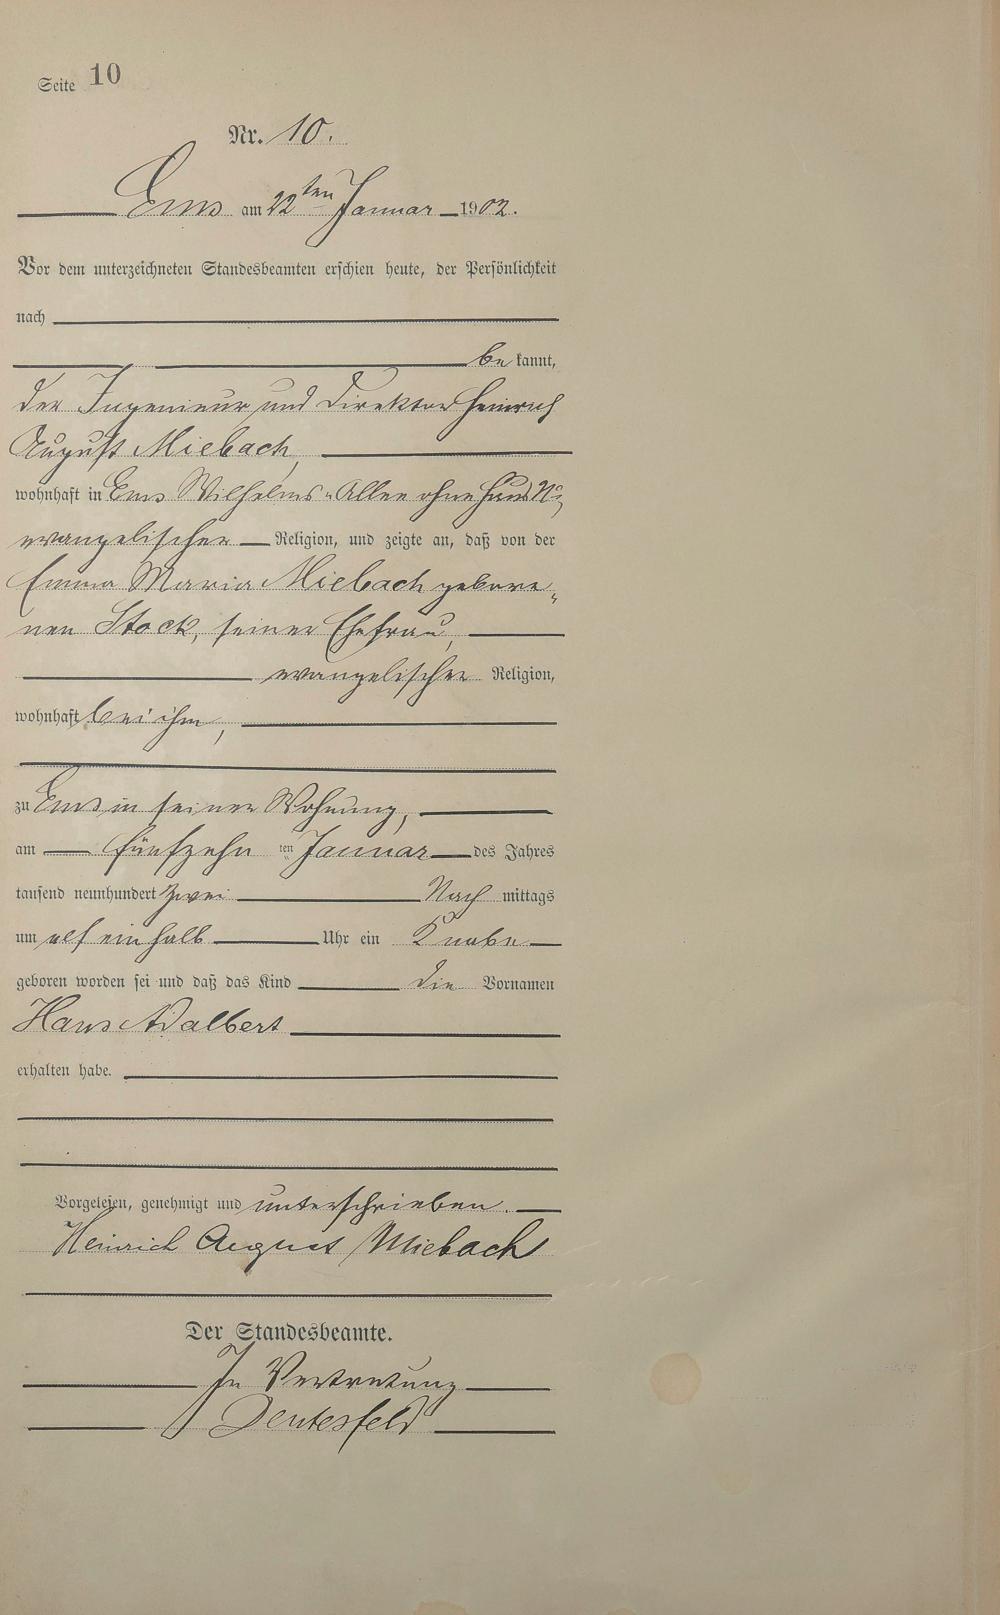 Seite 10
Nr. 10.
Ems am 22ten Januar 1902.
Vor dem unterzeichneten Standesbeamten erschien heute, der Persönlichkeit
nach
be kannt,
der Ingenieur und Direktor Heinrich
August Miebach,
wohnhaft in Ems Wilhelms-Allee ohne Haus No,
evangelischer Religion, und zeigte an, daß von der
Emma Maria Miebach gebore-
nen Stock, seiner Ehefrau,
evangelischer Religion,
wohnhaft bei ihm,
zu Ems in seiner Wohnung,
am fünfzehn ten Januar des Jahres
tausend neunhundert zwei Nach mittags
um elf einhalb Uhr ein Knabe
geboren worden sei und daß das Kind die Vornamen
Hans Adalbert
erhalten habe.
Vorgelesen, genehmigt und unterschrieben.
Heinrich August Miebach
Der Standesbeamte.
In Vertretung